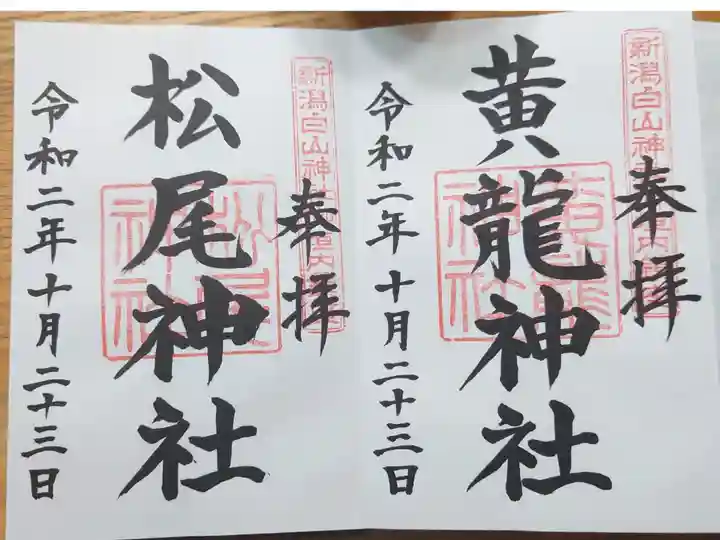 奉拝
新潟白山神社境内
黄龍神社
黄龍神社
令和二年十月二十三日
奉拝
新潟白山神社境内
松尾神社
松尾神社
令和二年十月二十三日